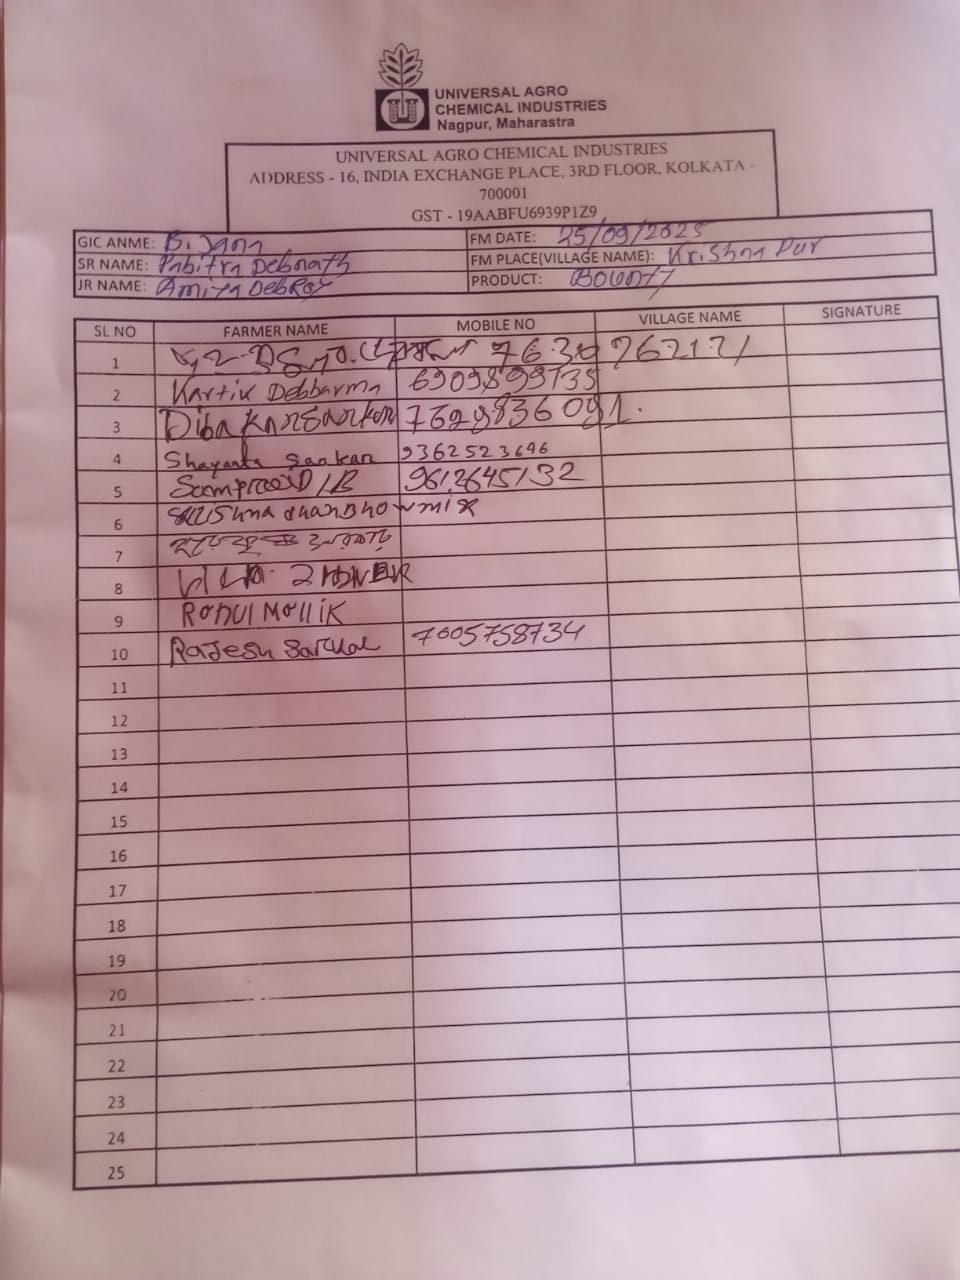 UNIVERSAL AGRO
CHEMICAL INDUSTRIES
Nagpur, Maharastra
UNIVERSAL AGRO CHEMICAL INDUSTRIES
ADDRESS - 16, INDIA EXCHANGE PLACE, 3RD FLOOR, KOLKATA -
700001
GST - 19AABFU6939P1Z9
GIC ANME: B. Jana FM DATE: 25/09/2025
SR NAME: Pabitra Debnath FM PLACE(VILLAGE NAME): Krishna Pur
JR NAME: Amiya DebRoy PRODUCT: Bounty
SL NO FARMER NAME MOBILE NO VILLAGE NAME SIGNATURE
1
2 Kartik Debbarma 6909899735
3 Dibakar Sarkar
4 Shayanta Sarkar 9362523646
5 9612645132
6
7
8
9 Rahul Mallik
10 Rajesh Sarkar 7005758734
11
12
13
14
15
16
17
18
19
20
21
22
23
24
25